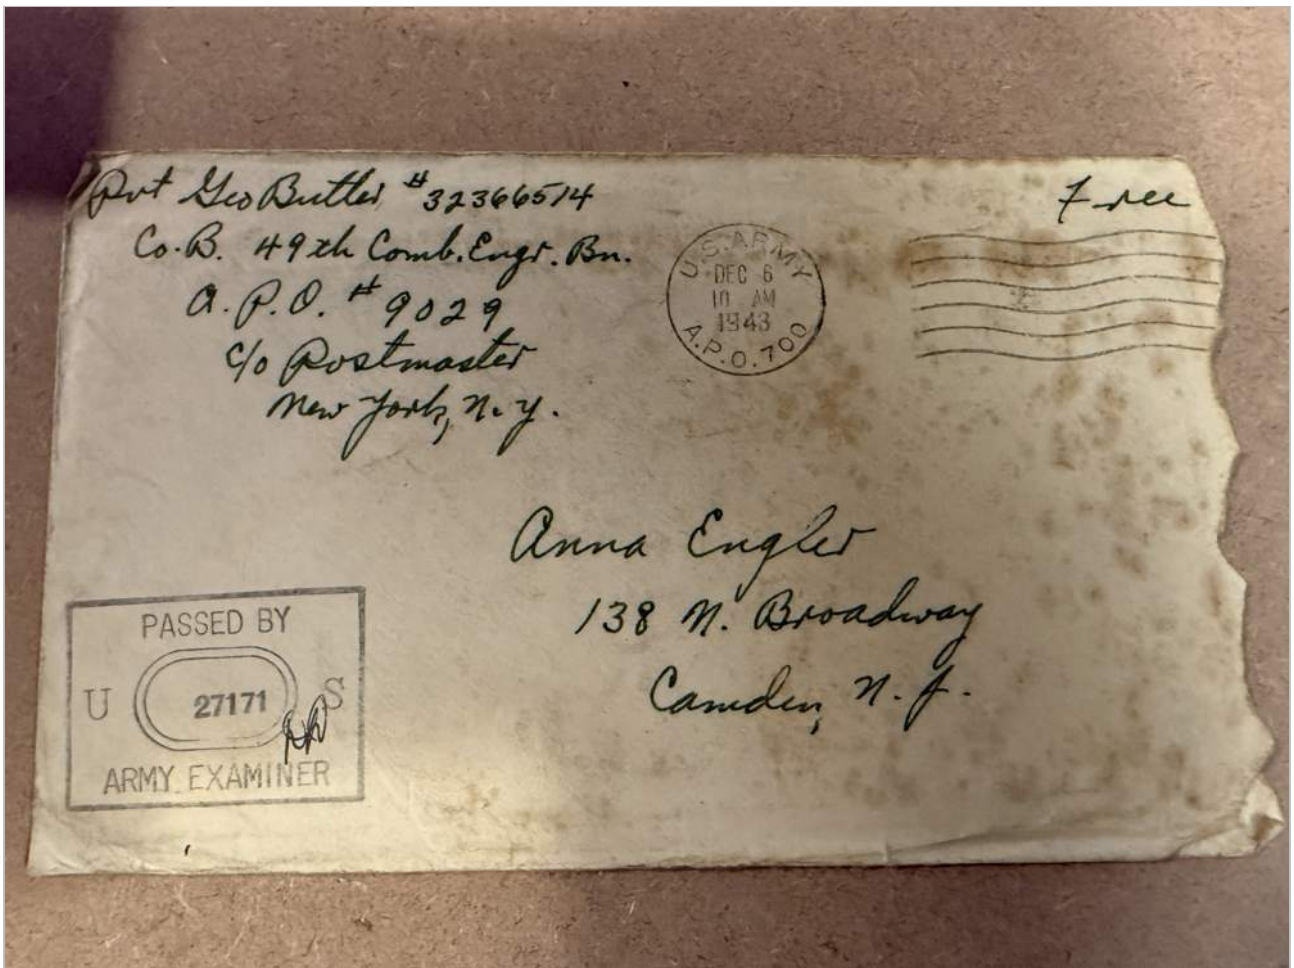 Pvt Geo Butler #32366514
Co. B. 49th Comb. Engr. Bn.
A. P. O. # 9029
c/o Postmaster
New York, N. Y.
Free
U.S. ARMY
DEC 6
10 AM
1943
A.P.O. 700
Anna Engler
138 N. Broadway
Camden, N. J.
PASSED BY
U 27171 S
ARMY EXAMINER